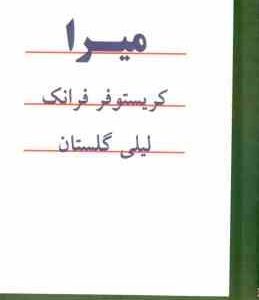 میرا
کریستوفر فرانک
لیلی گلستان